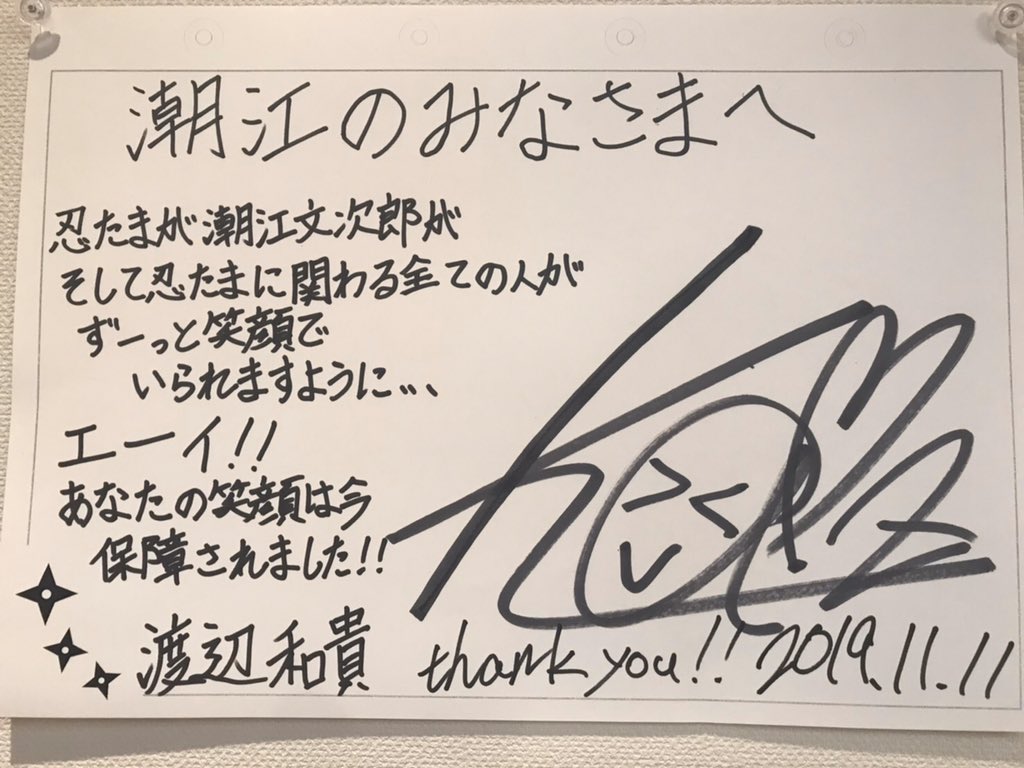 潮江のみなさまへ
忍たまが潮江文次郎が
そして忍たまに関わる全ての人が
ずーっと笑顔で
いられますように、、、
エーイ!!
あなたの笑顔は今
保障されました!!
渡辺和貴 thank you!! 2019.11.11